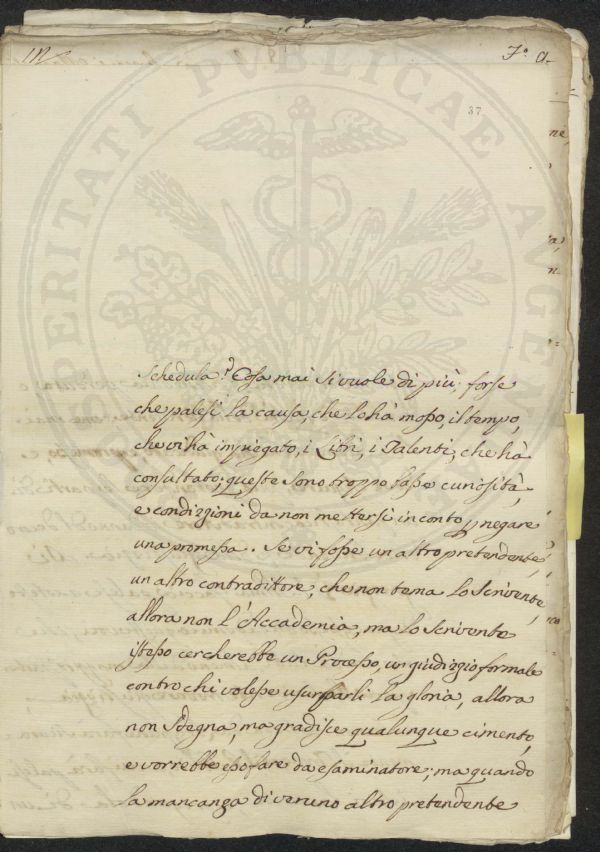 IN
F.o a.
37
PROSPERITATI PUBLICAE AUGENDAE
Schedula? Cosa mai si vuole di più; forse
che palesi la causa, che lo hà mosso, il tempo,
che vi hà impiegato, i Libri, i Talenti, che hà
consultato; queste sono troppo basse curiosità,
e condizioni da non mettersi in conto p negare
una promessa. Se vi fosse un altro pretendente,
un altro contradittore, che non tema lo Scrivente,
allora non l'Accademia, ma lo Scrivente
istesso cercherebbe un Processo, un giudizio formale
contro chi volesse usurparli la gloria, allora
non sdegna, ma gradisce qualunque cimento,
e vorrebbe esso fare da esaminatore; ma quando
la mancanza di veruno altro pretendente